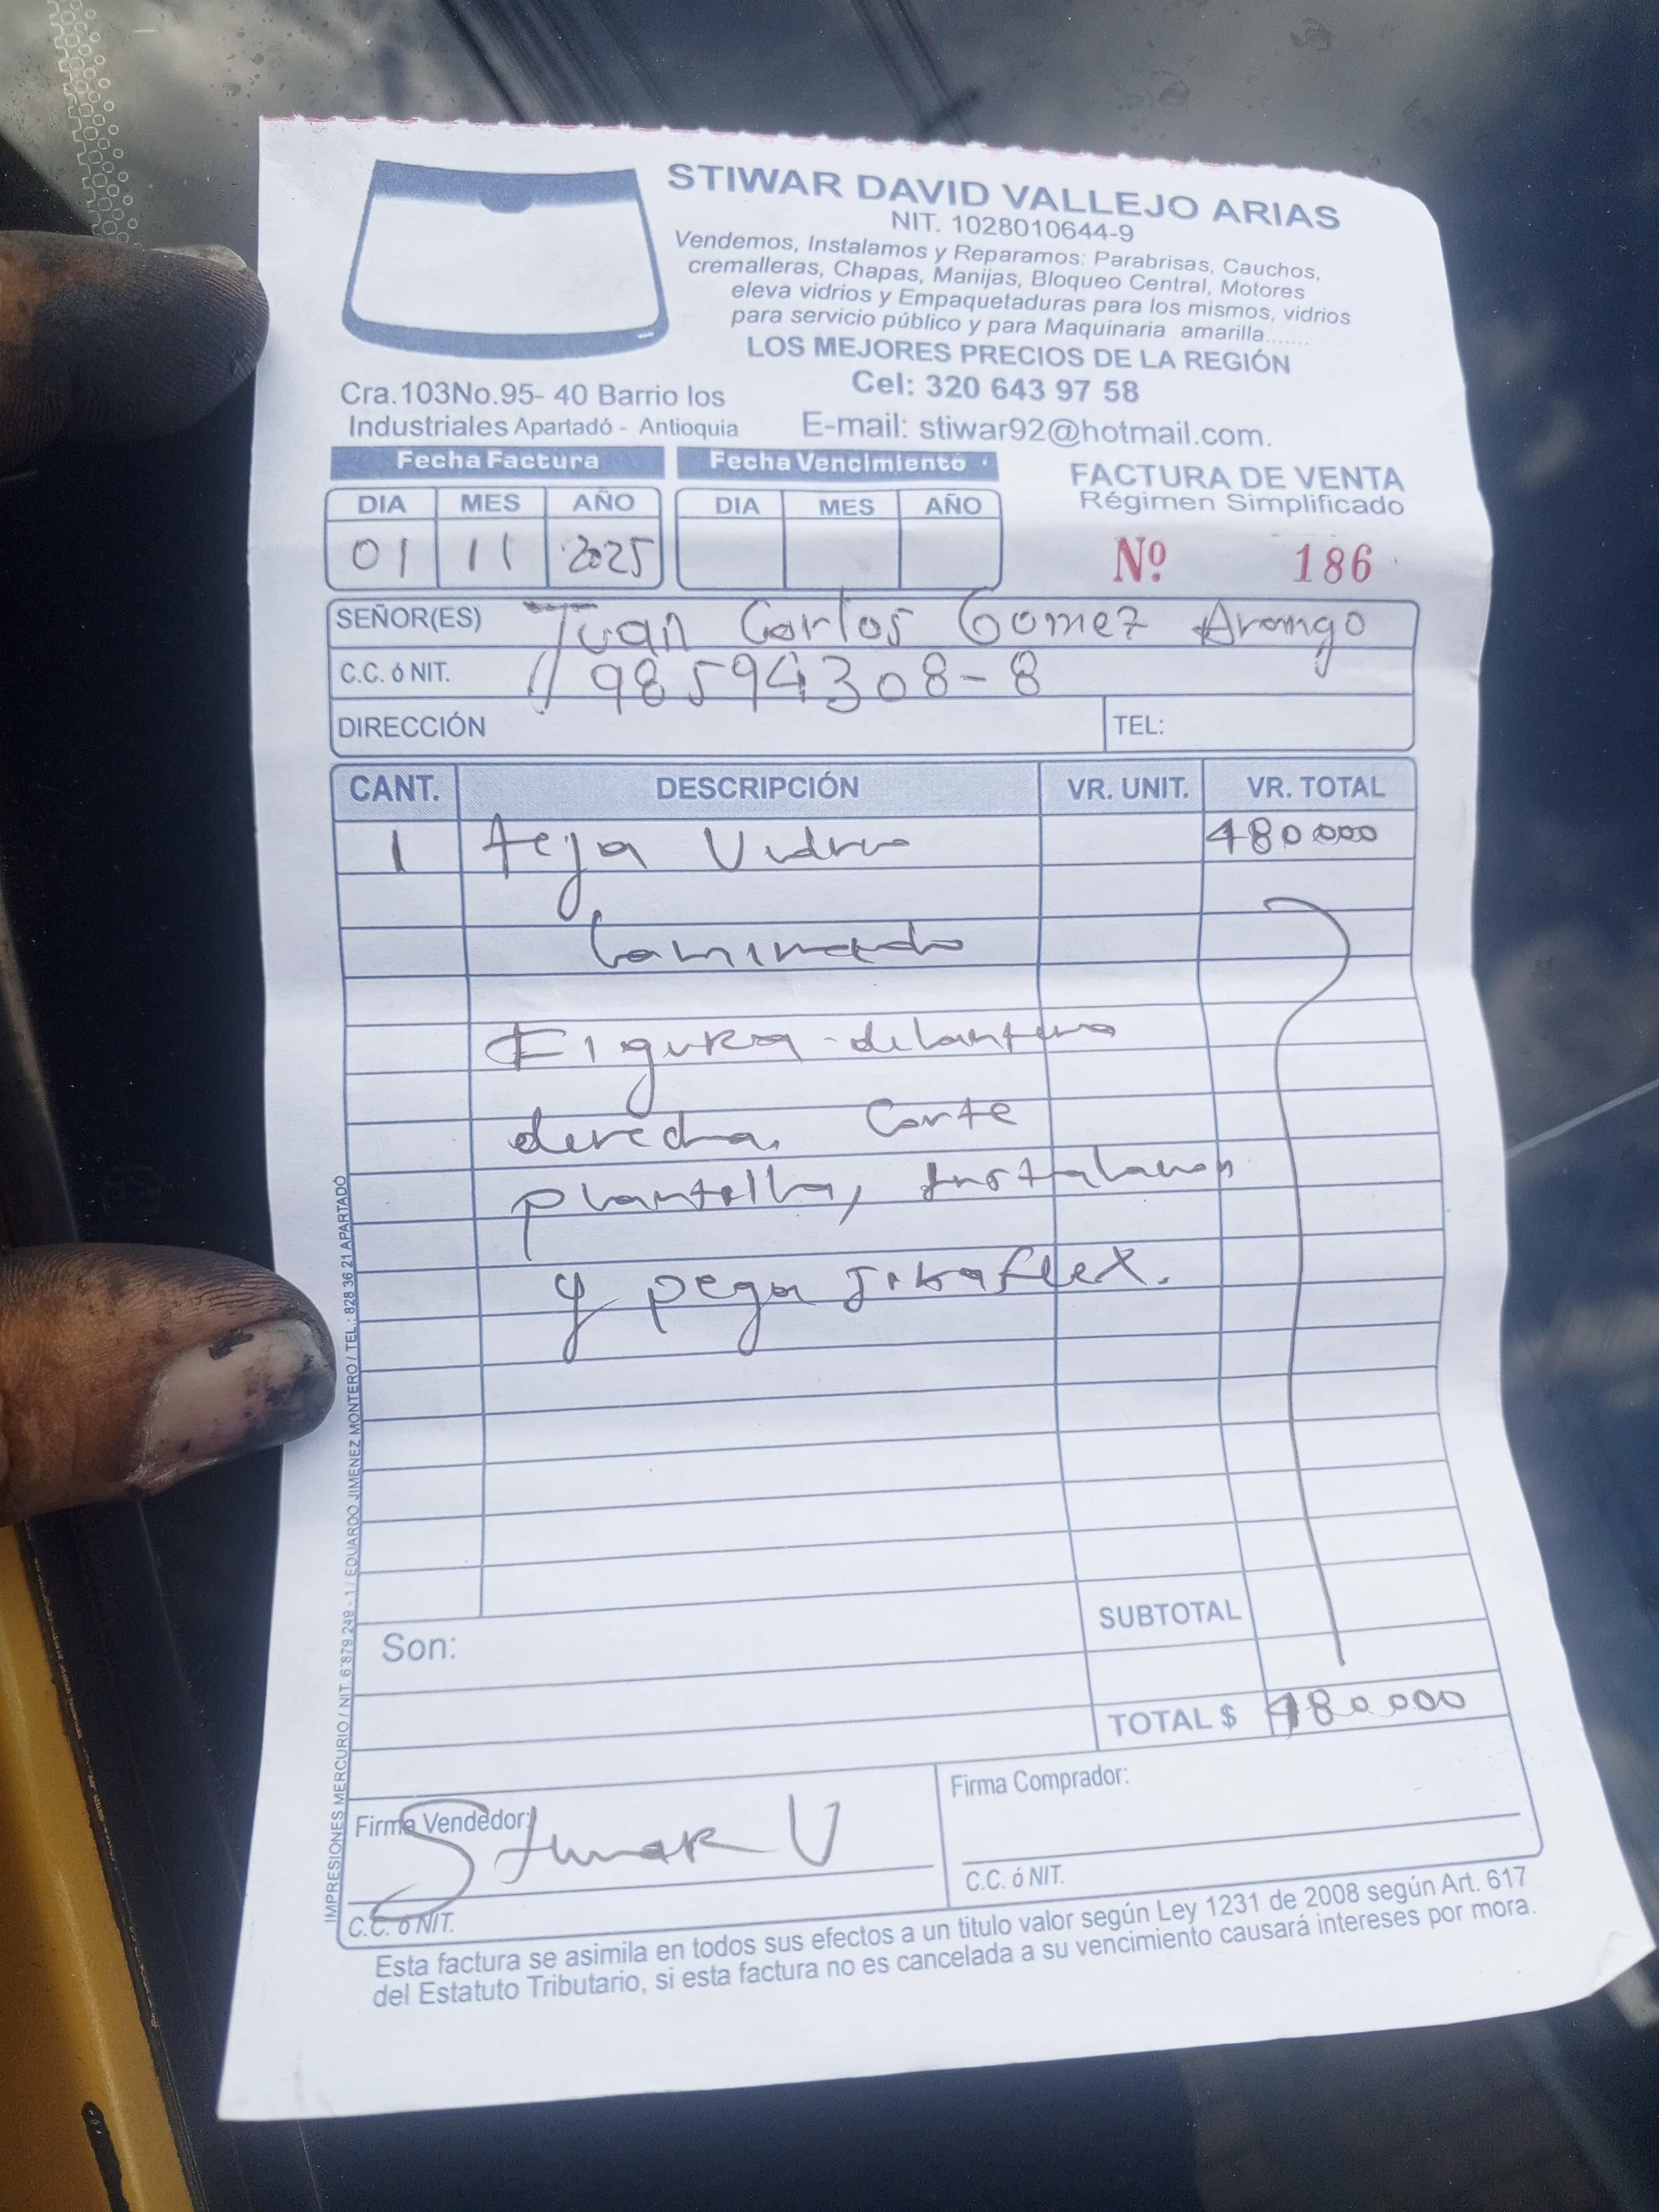 STIWAR DAVID VALLEJO ARIAS
NIT. 1028010644-9
Vendemos, Instalamos y Reparamos: Parabrisas, Cauchos,
cremalleras, Chapas, Manijas, Bloqueo Central, Motores
eleva vidrios y Empaquetaduras para los mismos, vidrios
para servicio público y para Maquinaria amarilla.......
LOS MEJORES PRECIOS DE LA REGIÓN
Cel: 320 643 97 58
Cra.103No.95- 40 Barrio los
Industriales Apartadó - Antioquia
E-mail: stiwar92@hotmail.com.
Fecha Factura
Fecha Vencimiento
FACTURA DE VENTA
Régimen Simplificado
DIA MES AÑO DIA MES AÑO
01 11 2025
Nº 186
SEÑOR(ES) Juan Carlos Gomez Arango
C.C. ó NIT. // 98594308-8
DIRECCIÓN TEL:
CANT. DESCRIPCIÓN VR. UNIT. VR. TOTAL
1 teja Vidrio 480000
laminado
Figura - delantera
derecha. Corte
plantilla, Instalacion
y pega sikaflex.
SUBTOTAL
Son:
TOTAL $ 480.000
Firma Vendedor: Stiwar V
Firma Comprador:
C.C. ó NIT.
C.C. ó NIT.
Esta factura se asimila en todos sus efectos a un titulo valor según Ley 1231 de 2008 según Art. 617
del Estatuto Tributario, si esta factura no es cancelada a su vencimiento causará intereses por mora.
IMPRESIONES MERCURIO / NIT. 6'879.249 - 1 / EDUARDO JIMENEZ MONTERO / TEL.: 828 36 21 APARTADÓ